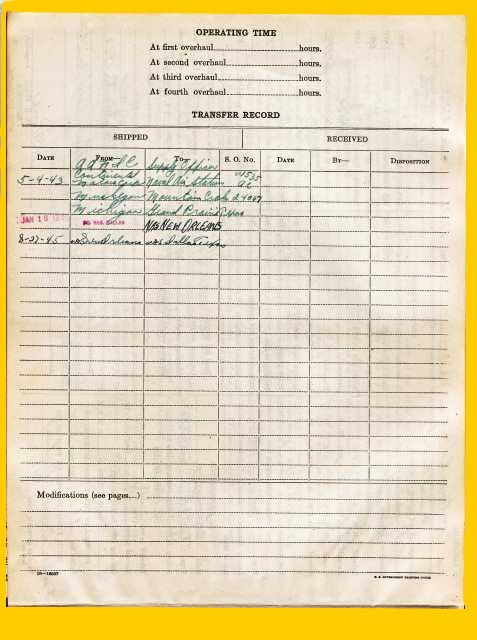 OPERATING TIME
At first overhaul hours.
At second overhaul hours.
At third overhaul hours.
At fourth overhaul hours.
TRANSFER RECORD
SHIPPED RECEIVED
DATE FROM— TO— S. O. No. DATE BY— DISPOSITION
Supply Officer
5-4-43 Continental Naval Air Station
Muskegon Mountain Creek
Michigan Grand Prairie Texas
JAN 18 NAS NEW ORLEANS
8-27-45 New Orleans NAS Dallas Texas
Modifications (see pages....)